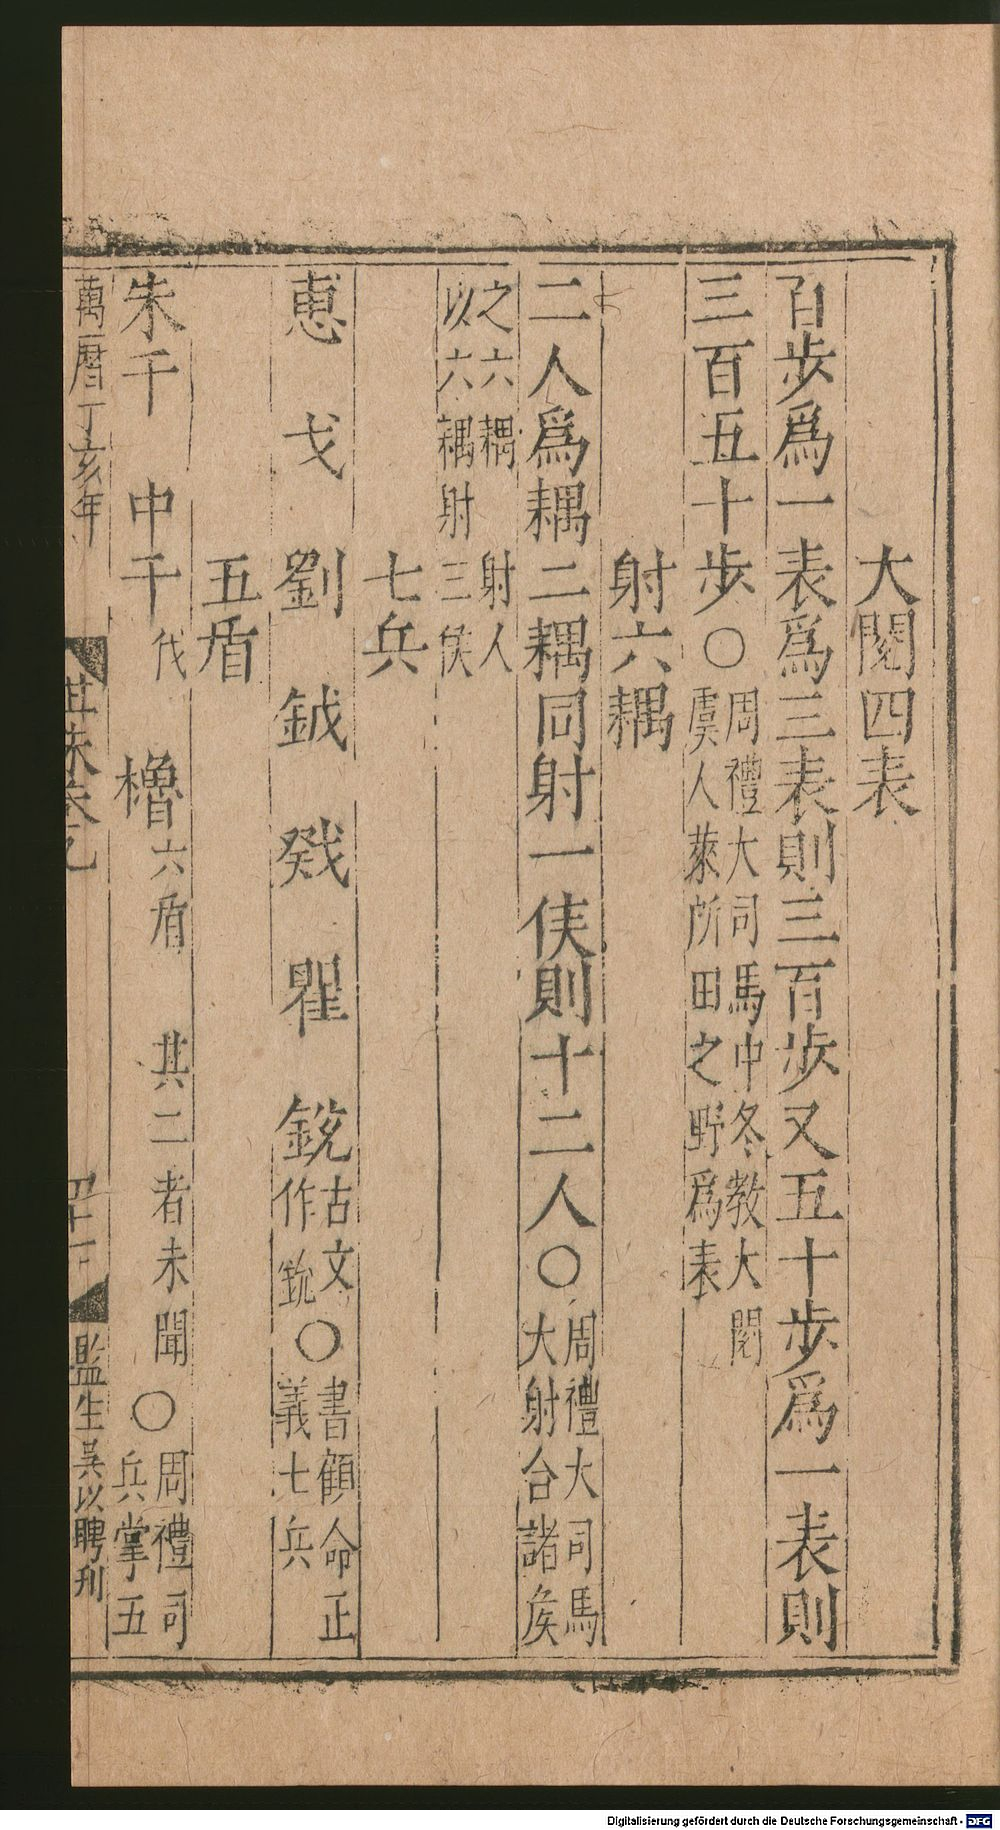 大閱四表
百步爲一表爲三表則三百步又五十步爲一表則
三百五十步○周禮大司馬中冬教大閱
虞人萊所田之野爲表
射六耦
二人爲耦二耦同射一侯則十二人○周禮大司馬
大射合諸侯
之六耦 射人
以六耦射三侯
七兵
惠 戈 劉 鉞 戣 瞿 銳古文○書顧命正
作鈗 義七兵
五盾
朱干 中干伐 櫓六盾 其二者未聞○周禮司
兵掌五
萬曆丁亥年
監生吳以聘刊
Digitalisierung gefördert durch die Deutsche Forschungsgemeinschaft - DFG